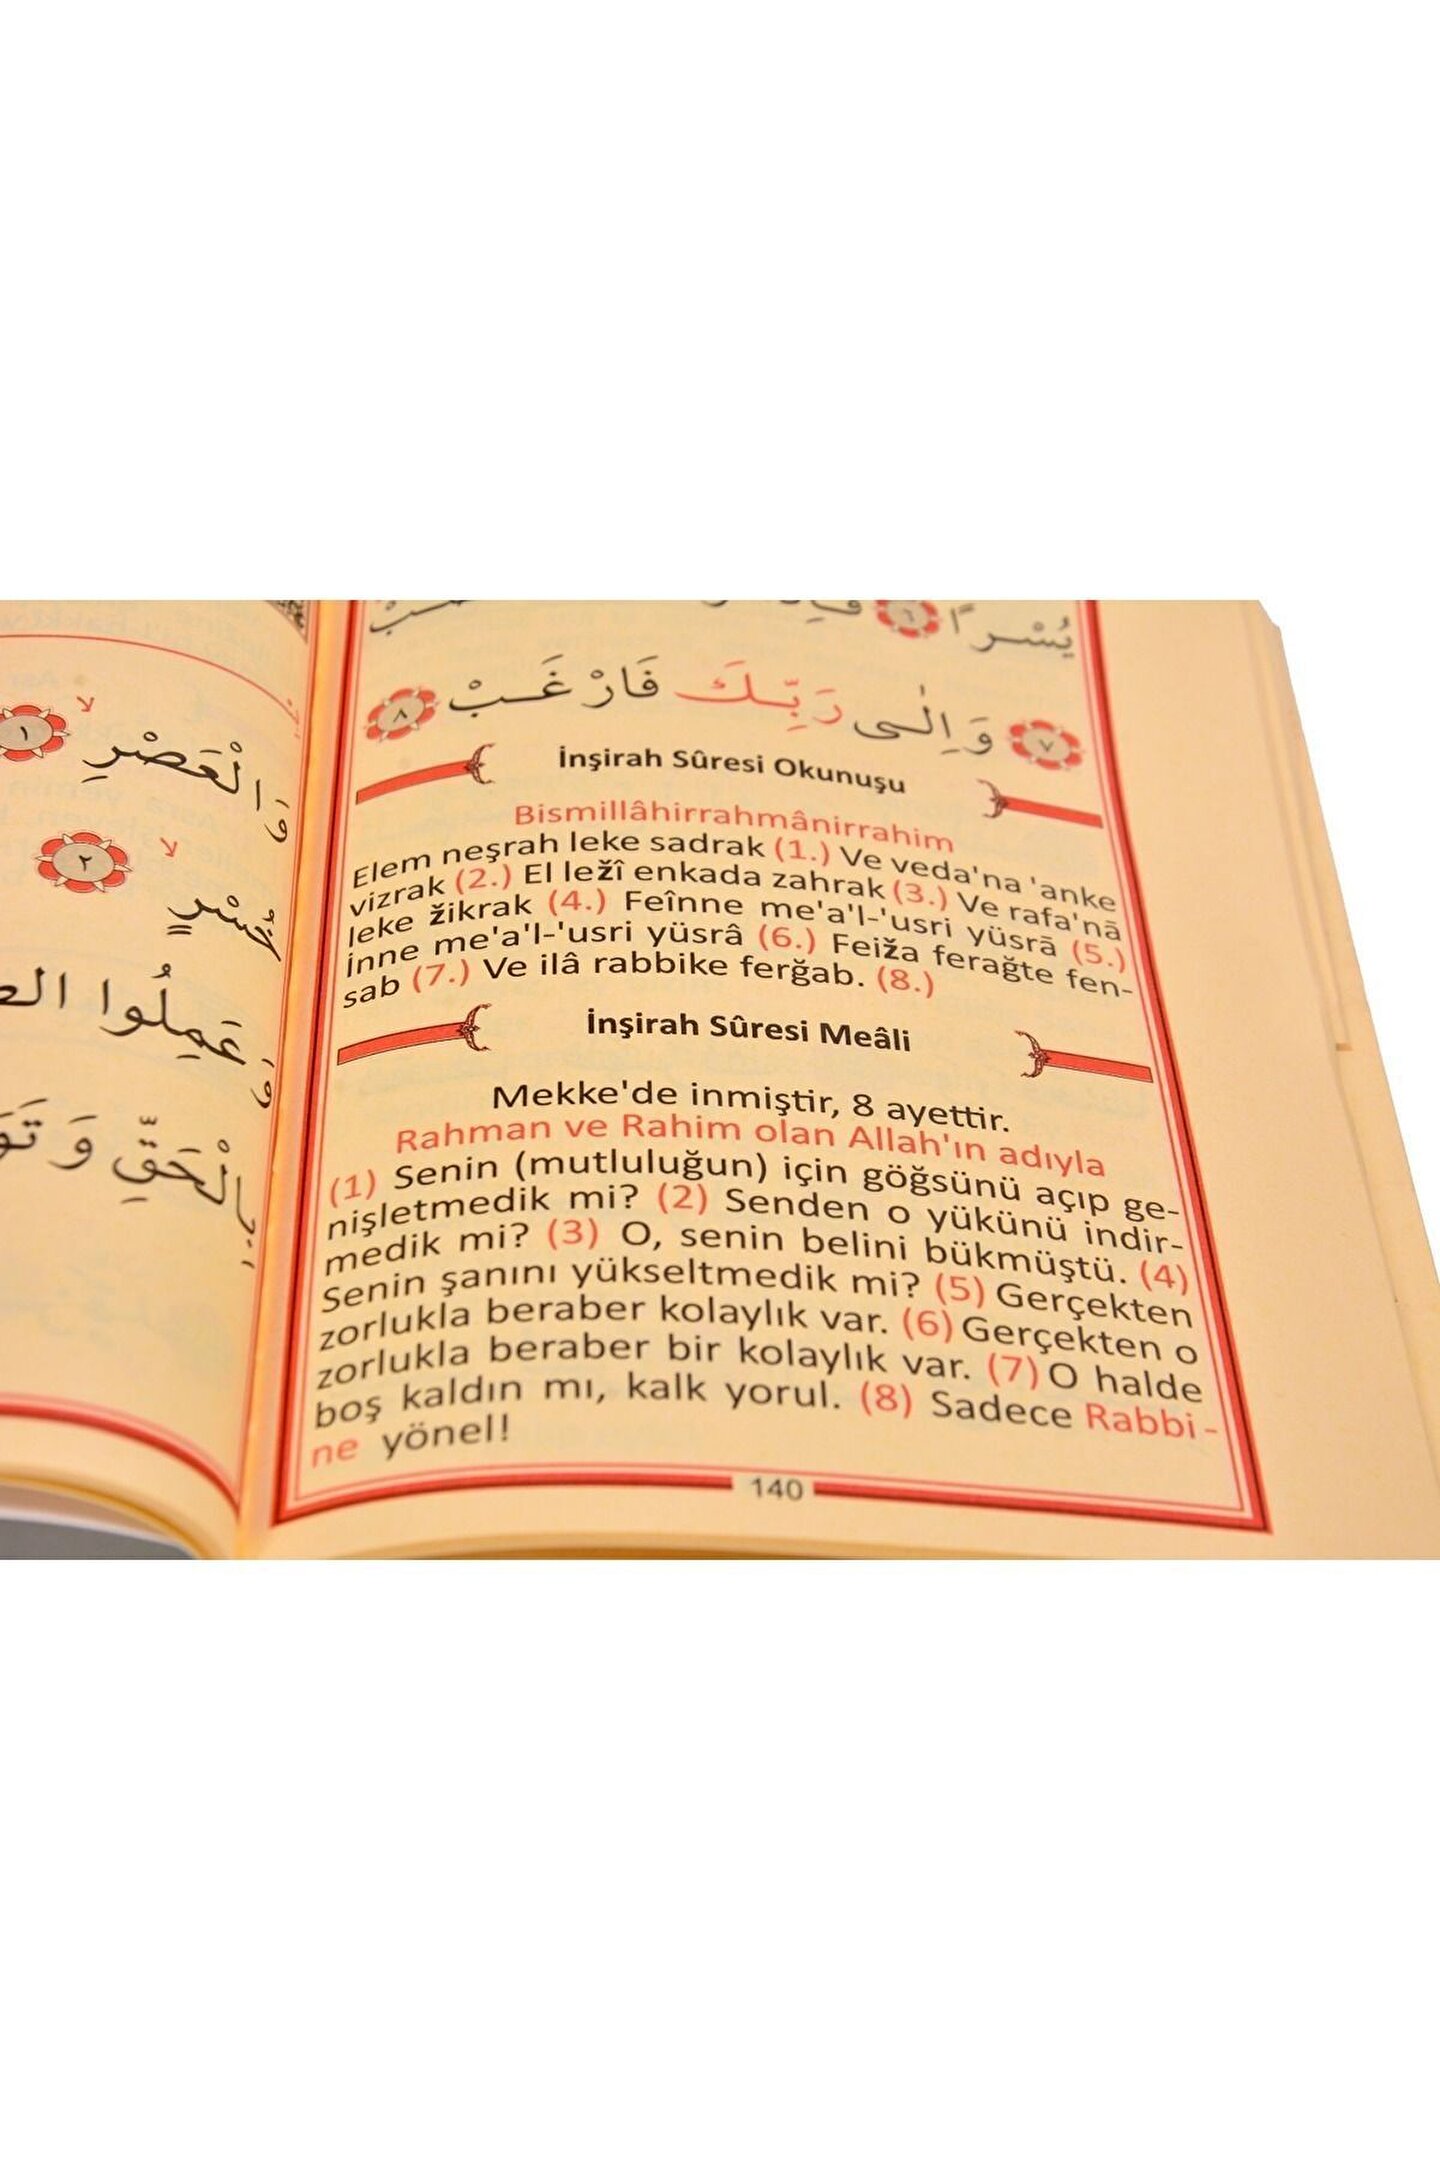 وَالْعَصْرِ ١
خُسْرٍ ٢
وَعَمِلُوا
بِالْحَقِّ
يُسْرًا ٦
٧ وَاِلٰى رَبِّكَ فَارْغَبْ ٨
İnşirah Sûresi Okunuşu
Bismillâhirrahmânirrahim
Elem neşrah leke sadrak (1.) Ve veda'na 'anke
vizrak (2.) Elležî enkada zahrak (3.) Ve rafa'nā
leke žikrak (4.) Feînne me'a'l-'usri yüsrā (5.)
İnne me'a'l-'usri yüsrâ (6.) Feiža ferağte fen-
sab (7.) Ve ilâ rabbike ferğab. (8.)
İnşirah Sûresi Meâli
Mekke'de inmiştir, 8 ayettir.
Rahman ve Rahim olan Allah'ın adıyla
(1) Senin (mutluluğun) için göğsünü açıp ge-
nişletmedik mi? (2) Senden o yükünü indir-
medik mi? (3) O, senin belini bükmüştü. (4)
Senin şanını yükseltmedik mi? (5) Gerçekten
zorlukla beraber kolaylık var. (6) Gerçekten o
zorlukla beraber bir kolaylık var. (7) O halde
boş kaldın mı, kalk yorul. (8) Sadece Rabbi-
ne yönel!
140